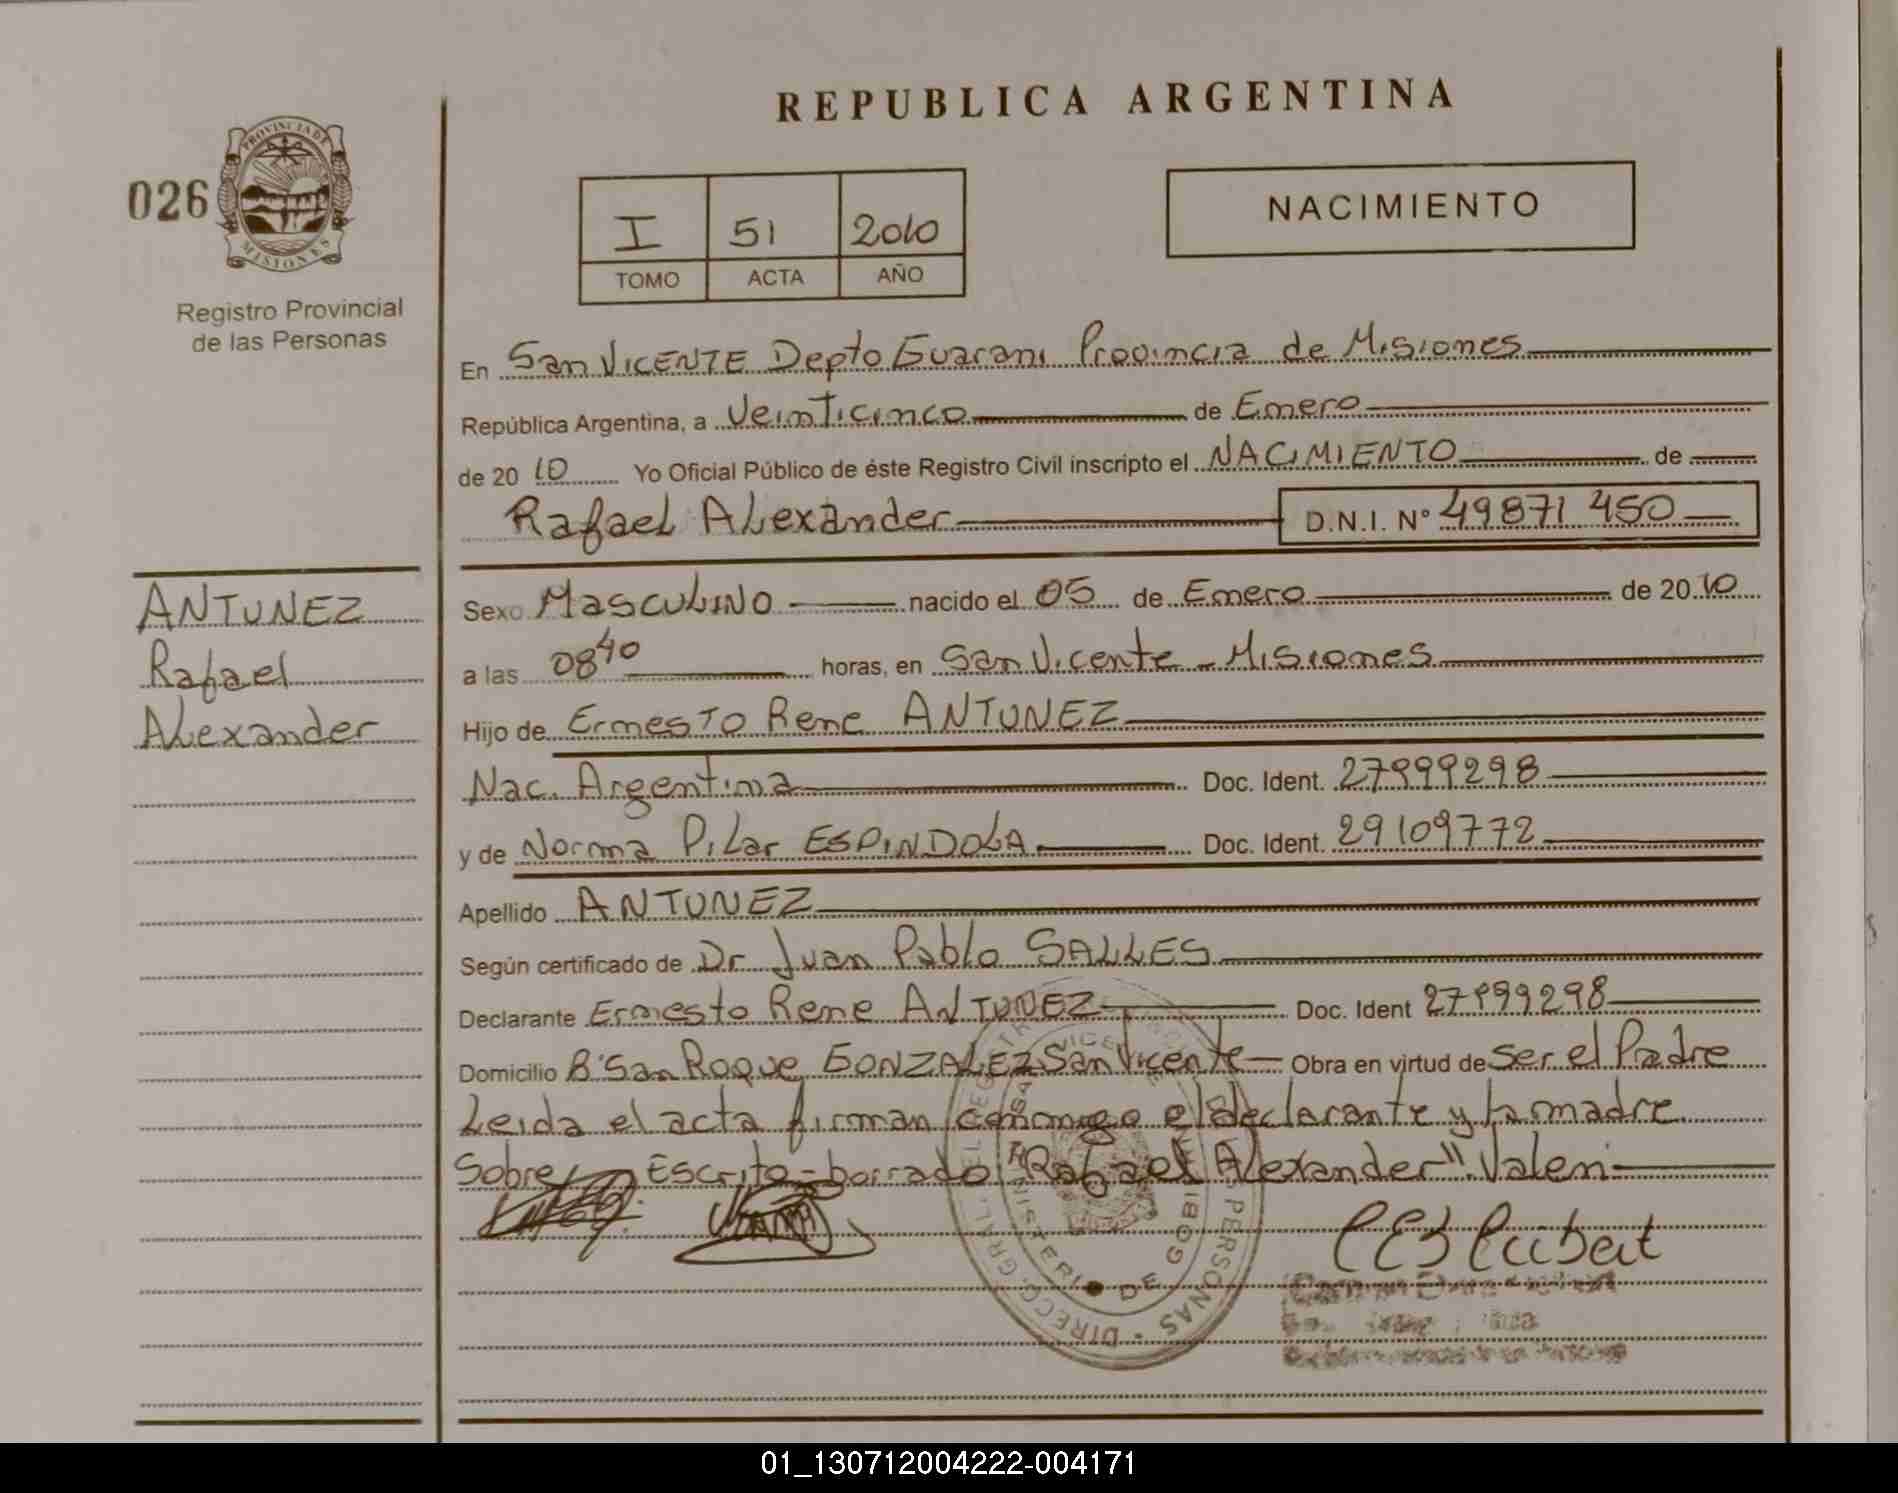 REPUBLICA ARGENTINA
026
PROVINCIA DE
MISIONES
Registro Provincial
de las Personas
I 51 2010
TOMO ACTA AÑO
NACIMIENTO
En San VICENTE Depto Guarani Provincia de Misiones
República Argentina, a Veinticinco de Enero
de 2010 Yo Oficial Público de éste Registro Civil inscripto el NACIMIENTO de
Rafael Alexander D.N.I. N° 49871 450
ANTUNEZ
Rafael
Alexander
Sexo Masculino nacido el 05 de Enero de 2010
a las 08 40 horas, en San Vicente - Misiones
Hijo de Ernesto Rene ANTUNEZ
Nac. Argentina Doc. Ident. 27999298
y de Norma Pilar ESPINDOLA Doc. Ident. 29109772
Apellido ANTUNEZ
Según certificado de Dr Juan Pablo SALLES
Declarante Ernesto Rene ANTUNEZ Doc. Ident 27999298
Domicilio B° San Roque GONZALEZ San Vicente Obra en virtud de Ser el Padre
Leida el acta firman conmigo el declarante y la madre
Sobre Escrito - borrado "Rafael Alexander" Valen
PERSONAS
MINISTERIO DE GOBI
01_130712004222-004171